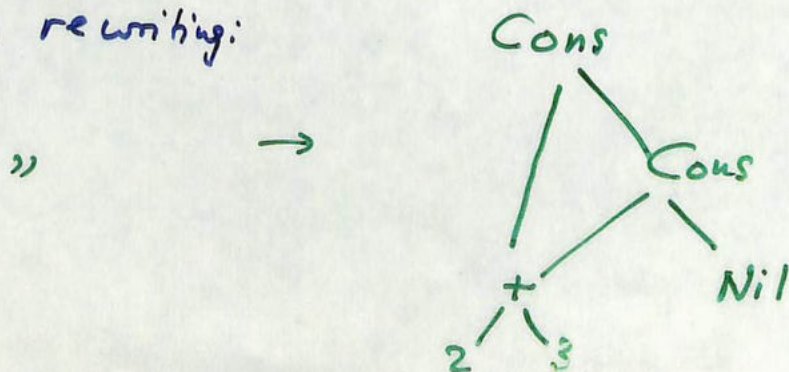 rewriting:
Cons
” → Cons
+ Nil
2 3